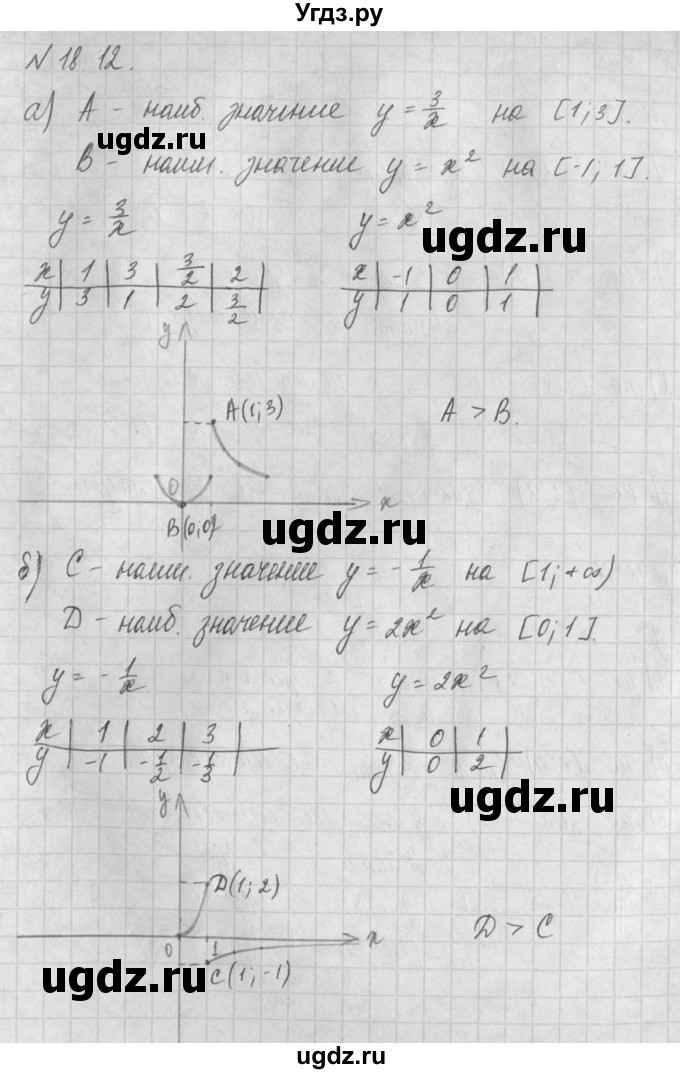 Угдз.ру
№ 18 12.
а) А - наиб. значение y = 3/x на [1; 3].
ugdz.ru
В - наим. значение y = x² на [-1; 1].
y = 3/x y = x²
ugdz.ru
x | 1 | 3 | 3/2 | 2 |
y | 3 | 1 | 2 | 3/2 |
x | -1 | 0 | 1 |
y | 1 | 0 | 1 |
y
A(1; 3)
A > B.
0
x
B(0; 0)
ugdz.ru
б) С - наим. значение y = - 1/x на [1; +∞)
ugdz.ru
D - наиб. значение y = 2x² на [0; 1].
y = - 1/x y = 2x²
x | 1 | 2 | 3 |
y | -1 | -1/2 | -1/3 |
x | 0 | 1 |
y | 0 | 2 |
ugdz.ru
y
D(1; 2)
D > C
0 1
x
C(1; -1)
ugdz.ru
ugdz.ru